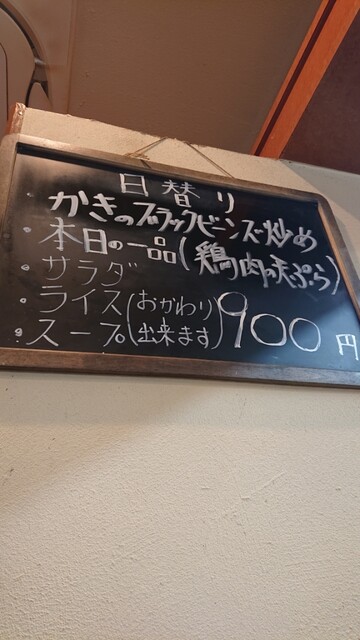 日替り
・かきのブラックビーンズ炒め
・本日の一品(鶏肉の天ぷら)
・サラダ
・ライス(おかわり
・スープ(出来ます) 900円